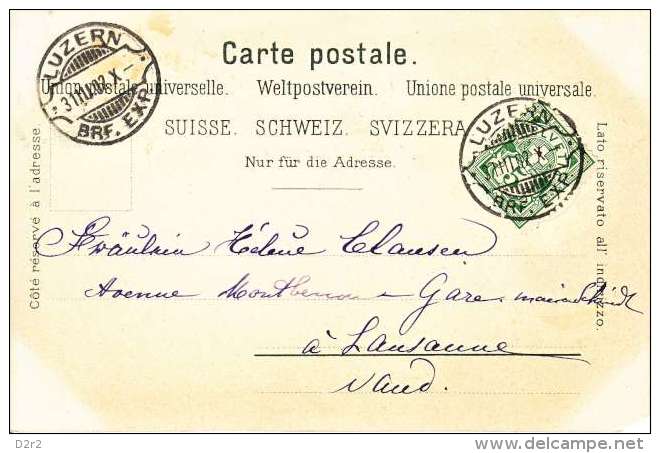 Carte postale.
Union postale universelle. Weltpostverein. Unione postale universale.
SUISSE. SCHWEIZ. SVIZZERA
Nur für die Adresse.
Côté réservé à l'adresse.
Lato riservato all' indirizzo.
LUZERN
BRF. EXP.
LUZERN
BRF. EXP.
Fräulein Hélène Clausen
Avenue Gare
à Lausanne
Vaud.
D2r2
delcampe.net